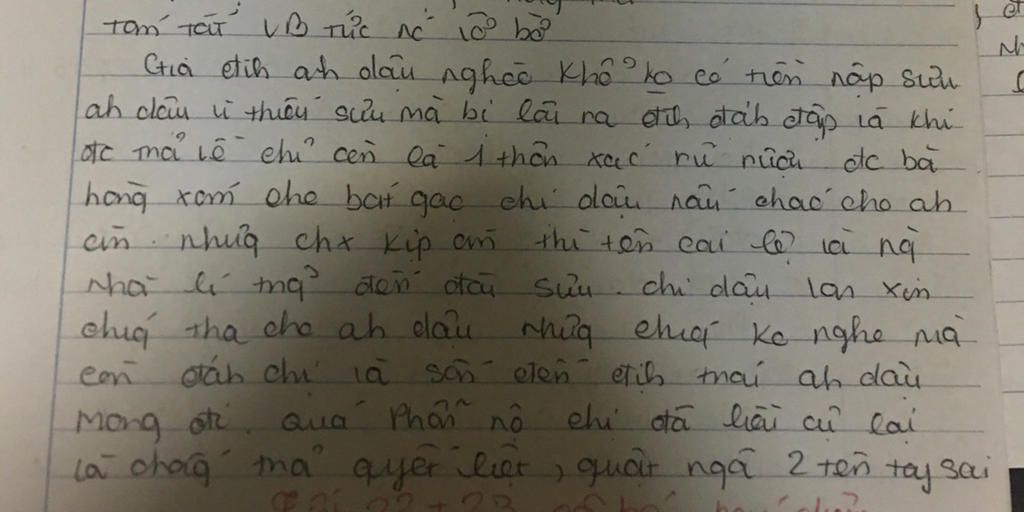 tóm tắt VB tức nc vỡ bờ
Gia đih ah dậu nghèo khổ ko có tiền nộp sưu
ah dậu vì thiếu sưu mà bị lôi ra đih đáh đập và khi
đc thả về chỉ còn là 1 thân xác rũ rượi đc bà
hàng xóm cho bát gạo chị dậu nấu cháo cho ah
ăn. nhưg chx kịp ăn thì tên cai lệ và ng
nhà lí trưởng đến đòi sưu. chị dậu van xin
chúg tha cho ah dậu nhưg chúg ko nghe mà
còn đáh chị và sấn đến địh trói ah dậu
mang đi. quá phẫn nộ chị đã liều cự lại
và chốg trả quyết liệt, quật ngã 2 tên tay sai